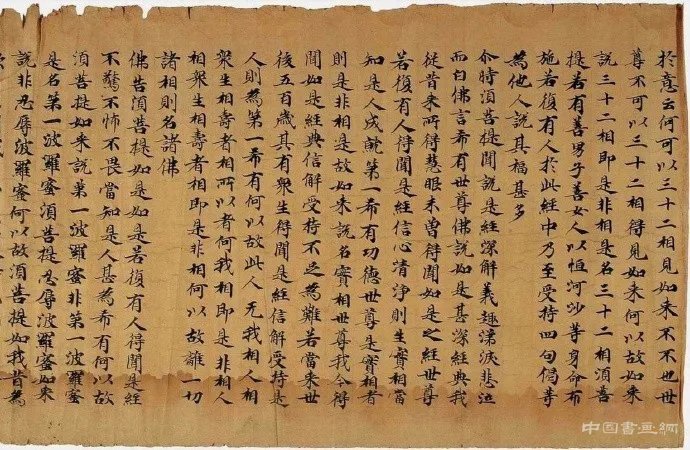 於意云何可以三十二相見如來不不也世
尊不可以三十二相得見如來何以故如來
說三十二相即是非相是名三十二相須菩
提若有善男子善女人以恒河沙等身命布
施若復有人於此經中乃至受持四句偈等
為他人說其福甚多
尒時須菩提聞說是經深解義趣涕淚悲泣
而白佛言希有世尊佛說如是甚深經典我
從昔來所得慧眼未曾得聞如是之經世尊
若復有人得聞是經信心清淨則生實相當
知是人成就第一希有功德世尊是實相者
則是非相是故如來說名實相世尊我今得
聞如是經典信解受持不足為難若當來世
後五百歲其有眾生得聞是經信解受持是
人則為第一希有何以故此人无我相人相
眾生相壽者相所以者何我相即是非相人
相眾生相壽者相即是非相何以故離一切
諸相則名諸佛
佛告須菩提如是如是若復有人得聞是經
不驚不怖不畏當知是人甚為希有何以故
須菩提如來說第一波羅蜜非第一波羅蜜
是名第一波羅蜜須菩提忍辱波羅蜜如來
說非忍辱波羅蜜何以故須菩提如我昔為
中国書画網